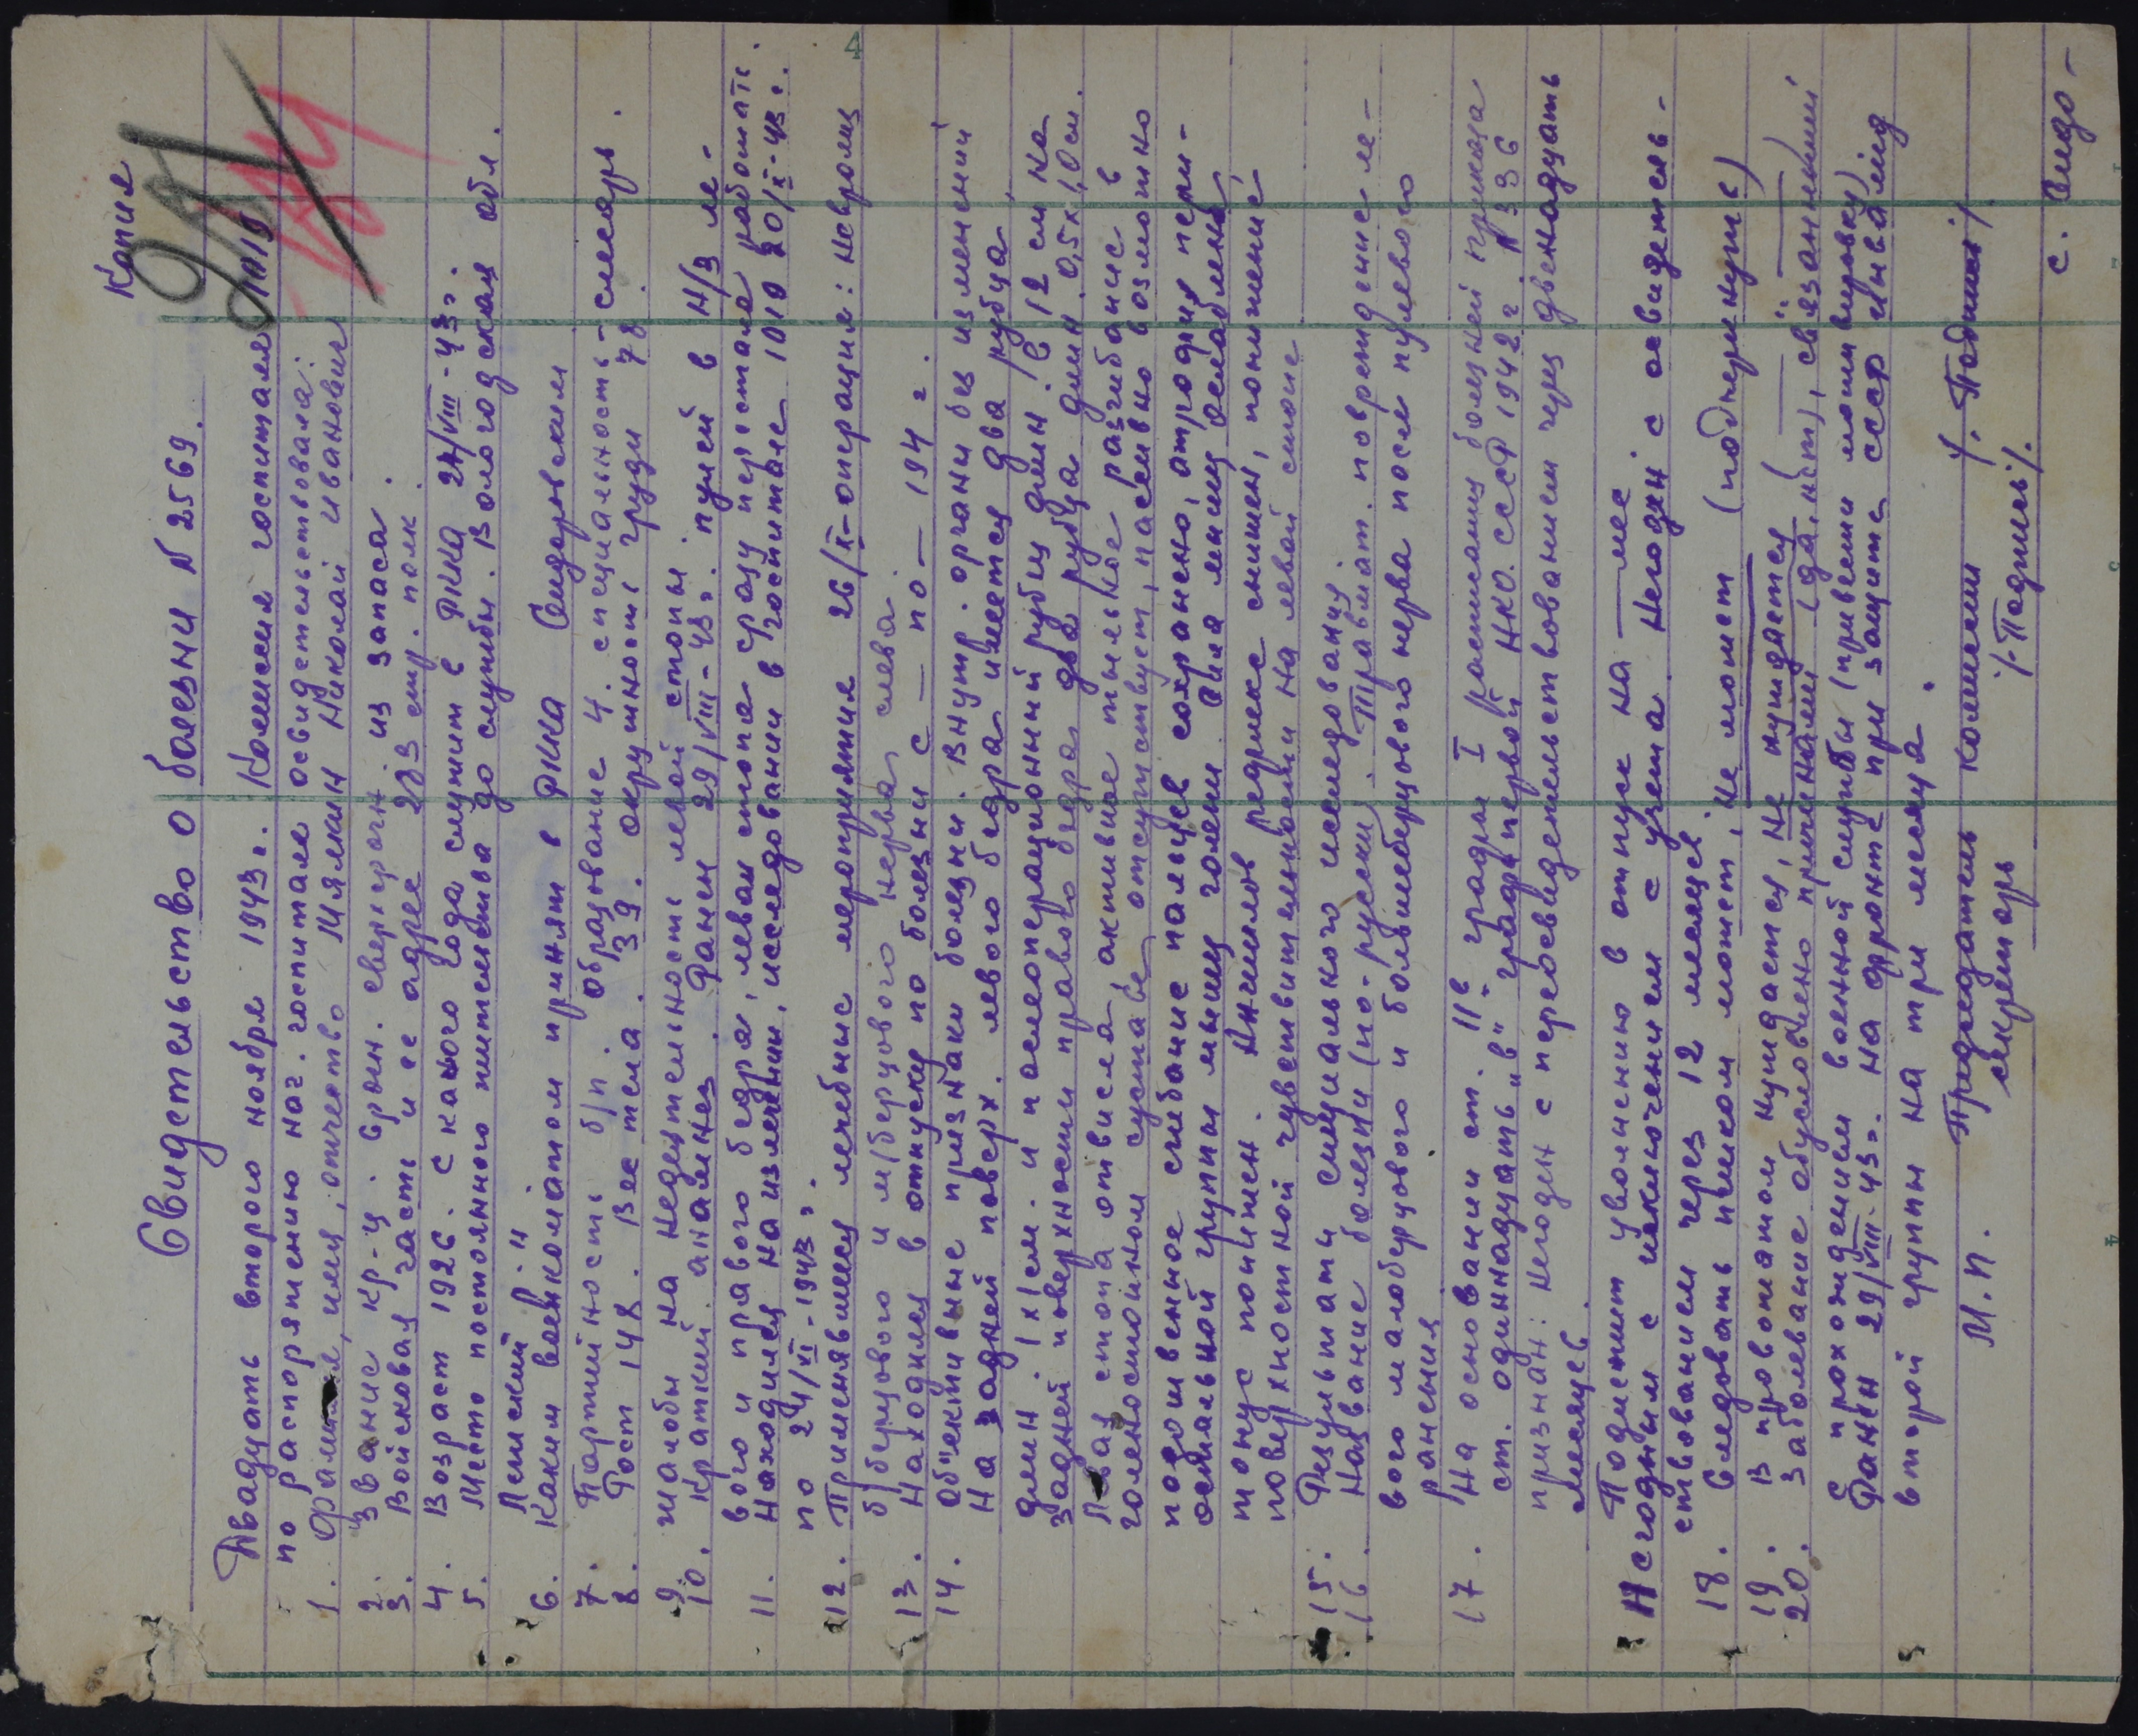 Копия
Свидетельство о болезни N 2569.
Двадцать второго ноября 1943 г. Комиссия госпиталя 1019
по распоряжению нач. госпиталя освидетельствовала:
1. Фамилия, имя, отчество Мялкин Николай Иванович
2. Звание кр-ц. срочн. сверхсрочн. из запаса.
3. Войсковая часть и ее адрес 283 стр. полк.
4. Возраст 1926. с какого года служит в РККА 24/VIII-43г.
5. Место постоянного жительства до службы. Вологодская обл.
6. Каким военкоматом принят в РККА
7. Партийность б/п. Образование 4. специальность - слесарь.
8. Рост 148. Вес тела. 39. окружность груди 78.
9. Жалобы на недеятельность левой стопы.
10. Краткий анамнез. Ранен 29/VIII-43г. пулей в Н/3 ле-
вого и правого бедра, левая стопа сразу перестала работать.
11. Находился на излечении, исследовании в госпитале 1019 20/X-43г.
по 24/XI-1943г.
12. Применявшиеся лечебные мероприятия 26/X-операция: невролиз
б/берцового и м/берцового нерва слева.
13. Находился в отпуску по болезни с — по — 194 г.
14. Об"ективные признаки болезни. Внутр. органы без изменений
На задней поверх. левого бедра имеется два рубца
длин. 1х1см. и послеоперационный рубец длин. в 12 см на
задней поверхности правого бедра два рубца длин. 0,5х1,0см.
Левая стопа отвисла, активное тыльное разгибание в
голеностопном суставе отсутствует, пассивно возможно
подошвенное сгибание пальцев сохранено, атрофия пери-
остальной группы мышц голени. Сила мышц ослаблена
тонус понижен. Ахиллов рефлекс снижен, понижение
поверхностной чувствительности на левой стопе
15. Результаты специального исследования:
16. Название болезни (по-русски). Травмат. повреждение ле-
вого малоберцового и большеберцового нерва после пулевого
ранения
17. На основании ст. 11в графы I расписания болезней приказа
ст. одиннадцать "в" графы первой НКО. СССР 1942 г. N 336
признан: негоден с переосвидетельствованием через двенадцать
месяцев.
Подлежит увольнению в отпуск на — мес
Негодным с исключением с учета. Негоден с освидетель-
ствованием через 12 месяцев
18. Следовать пешком может, не может (подчеркнуть)
19. В провожатом нуждается, не нуждается
20. Заболевание обусловлено причинами (да, нет), связанными
с прохождением военной службы (привести мотивировку)
Ранен 29/VIII-43г. на фронте при защите СССР инвалид
второй группы на три месяца.
М.п. Председатель комиссии /. Подпись/.
секретарь /-Подпись/.